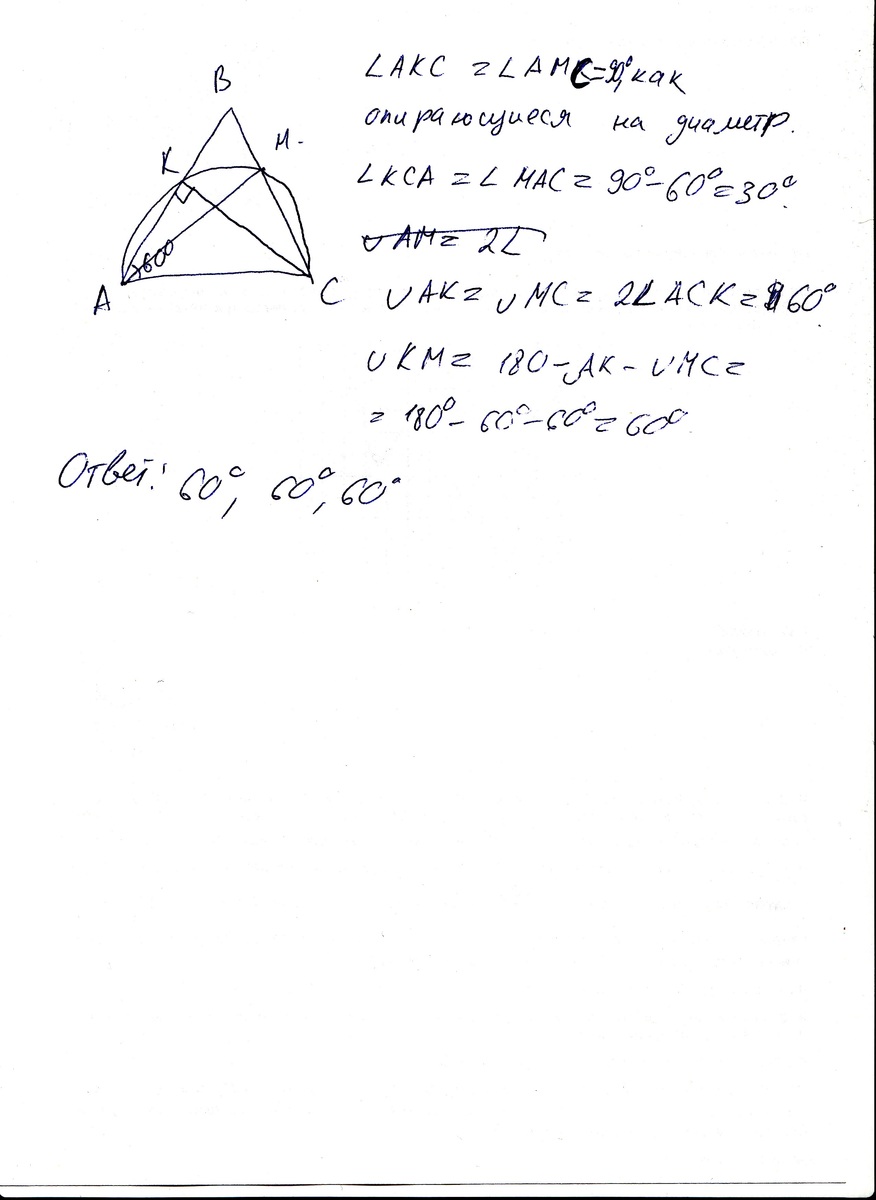 B
K
M.
60°
A
C
∠AKC = ∠AMC = 90°, как
опирающиеся на диаметр.
∠KCA = ∠MAC = 90° - 60° = 30°.
∪AM = 2∠
∪AK = ∪MC = 2∠ACK = 60°.
∪KM = 180 - ∪AK - ∪MC =
= 180° - 60° - 60° = 60°.
Ответ: 60°, 60°, 60°